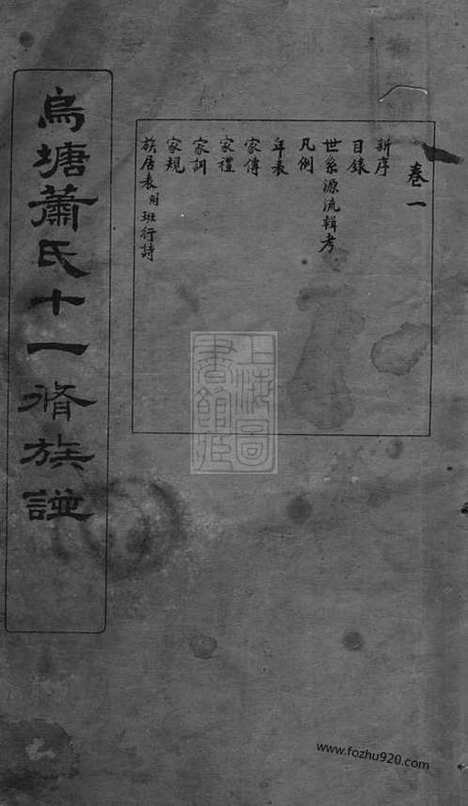 烏塘蕭氏十一脩族譜
卷一
新序
目錄
世系源流輯考
凡例
年表
家傳
家禮
家訓
家規
族居表附班行詩
上海圖書館藏
www.fozhu920.com